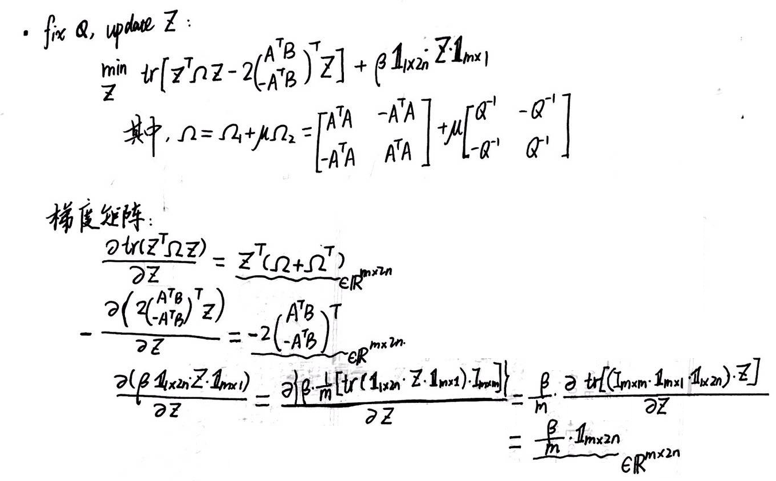 · fix Q, update Z:
min_Z tr[Z^TΩZ - 2(A^TB; -A^TB)^T Z] + β 𝟙_{1×2n}·Z·𝟙_{m×1}
其中, Ω = Ω_1 + μΩ_2 = [A^TA  -A^TA; -A^TA  A^TA] + μ[Q^{-1}  -Q^{-1}; -Q^{-1}  Q^{-1}]
梯度矩阵:
∂tr(Z^TΩZ)/∂Z = Z^T(Ω+Ω^T) ∈ℝ^{m×2n}
- ∂(2(A^TB; -A^TB)^T Z)/∂Z = -2(A^TB; -A^TB)^T ∈ℝ^{m×2n}.
∂(β·𝟙_{1×2n}·Z·𝟙_{m×1})/∂Z = ∂{β·1/m[tr(𝟙_{1×2n}·Z·𝟙_{m×1})·I_{m×m}]}/∂Z = β/m · ∂tr[(I_{m×m}·𝟙_{m×1}·𝟙_{1×2n})·Z]/∂Z
= β/m · 𝟙_{m×2n} ∈ℝ^{m×2n}